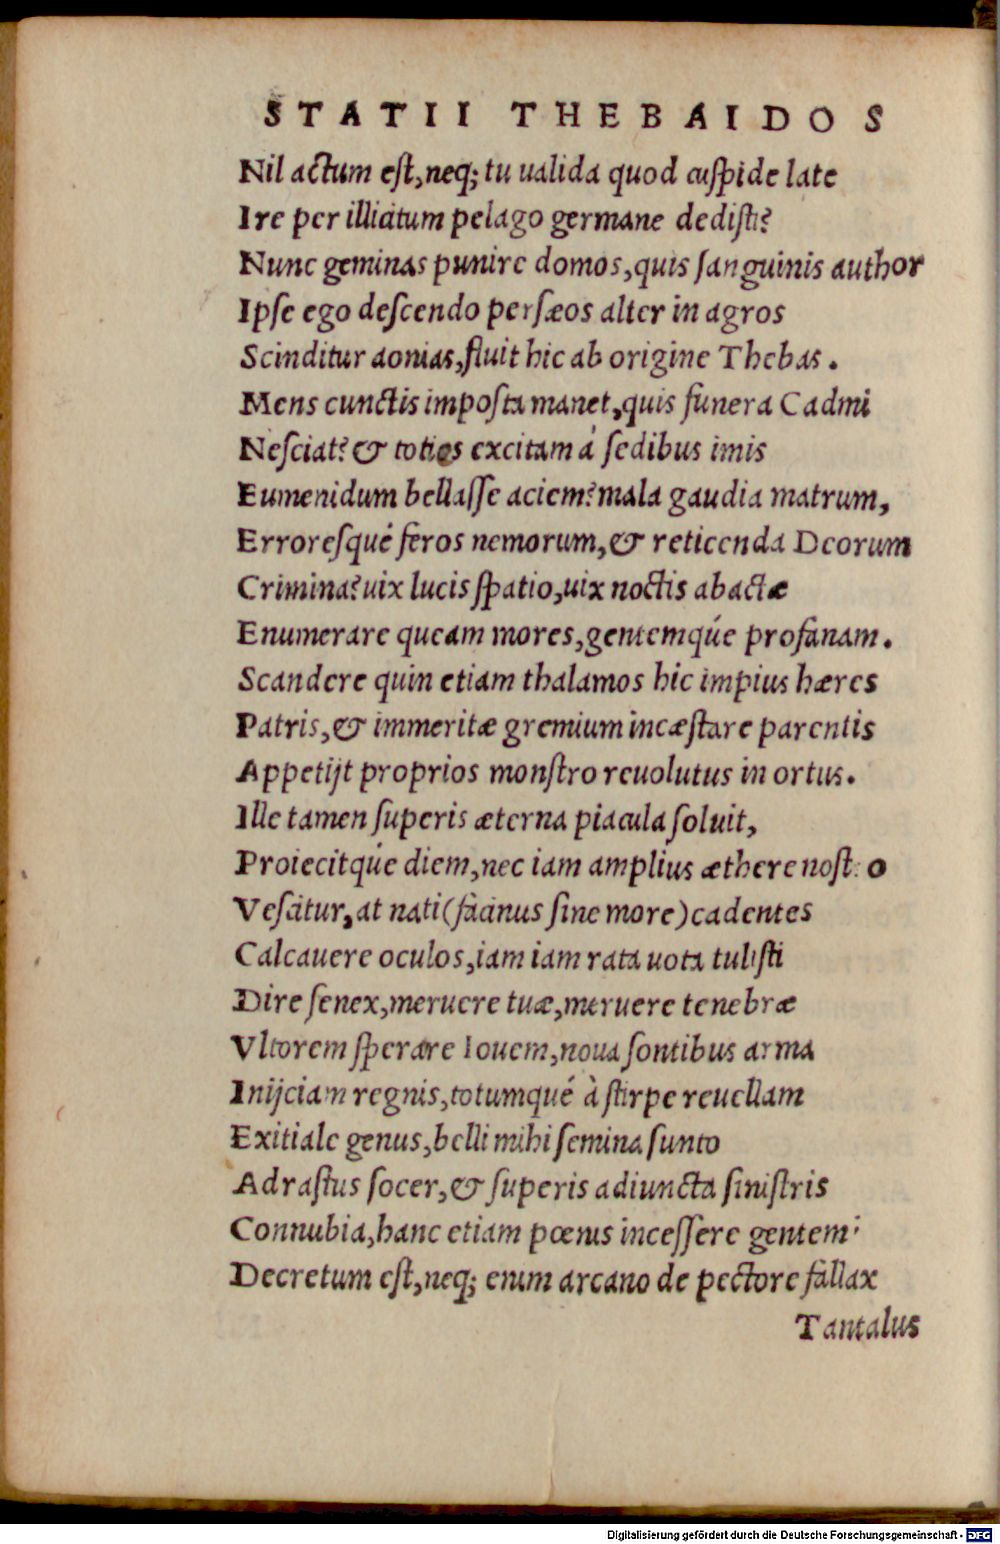 STATII THEBAIDOS
Nil actum est, neq; tu ualida quod cuspide late
Ire per illicitum pelago germane dedisti?
Nunc geminas punire domos, quis sanguinis author
Ipse ego descendo persæos alter in agros
Scinditur aonias, fluit hic ab origine Thebas.
Mens cunctis imposta manet, quis funera Cadmi
Nesciat? & toties excitam á sedibus imis
Eumenidum bellasse aciem? mala gaudia matrum,
Erroresqué feros nemorum, & reticenda Deorum
Crimina? uix lucis spatio, uix noctis abactæ
Enumerare queam mores, gentemqúe profanam.
Scandere quin etiam thalamos hic impius hæres
Patris, & immeritæ gremium incæstare parentis
Appetijt proprios monstro reuolutus in ortus.
Ille tamen superis æterna piacula soluit,
Proiecitqúe diem, nec iam amplius æthere nost o
Vescitur, at nati (facinus sine more) cadentes
Calcauere oculos, iam iam rata uota tulisti
Dire senex, meruere tuæ, meruere tenebræ
Vltorem sperare Iouem, noua sontibus arma
Inijciam regnis, totumqué à stirpe reuellam
Exitiale genus, belli mihi semina sunto
Adrastus socer, & superis adiuncta sinistris
Connubia, hanc etiam pœnis incessere gentem
Decretum est, neq; enim arcano de pectore fallax
Tantalus
Digitalisierung gefördert durch die Deutsche Forschungsgemeinschaft - DFG